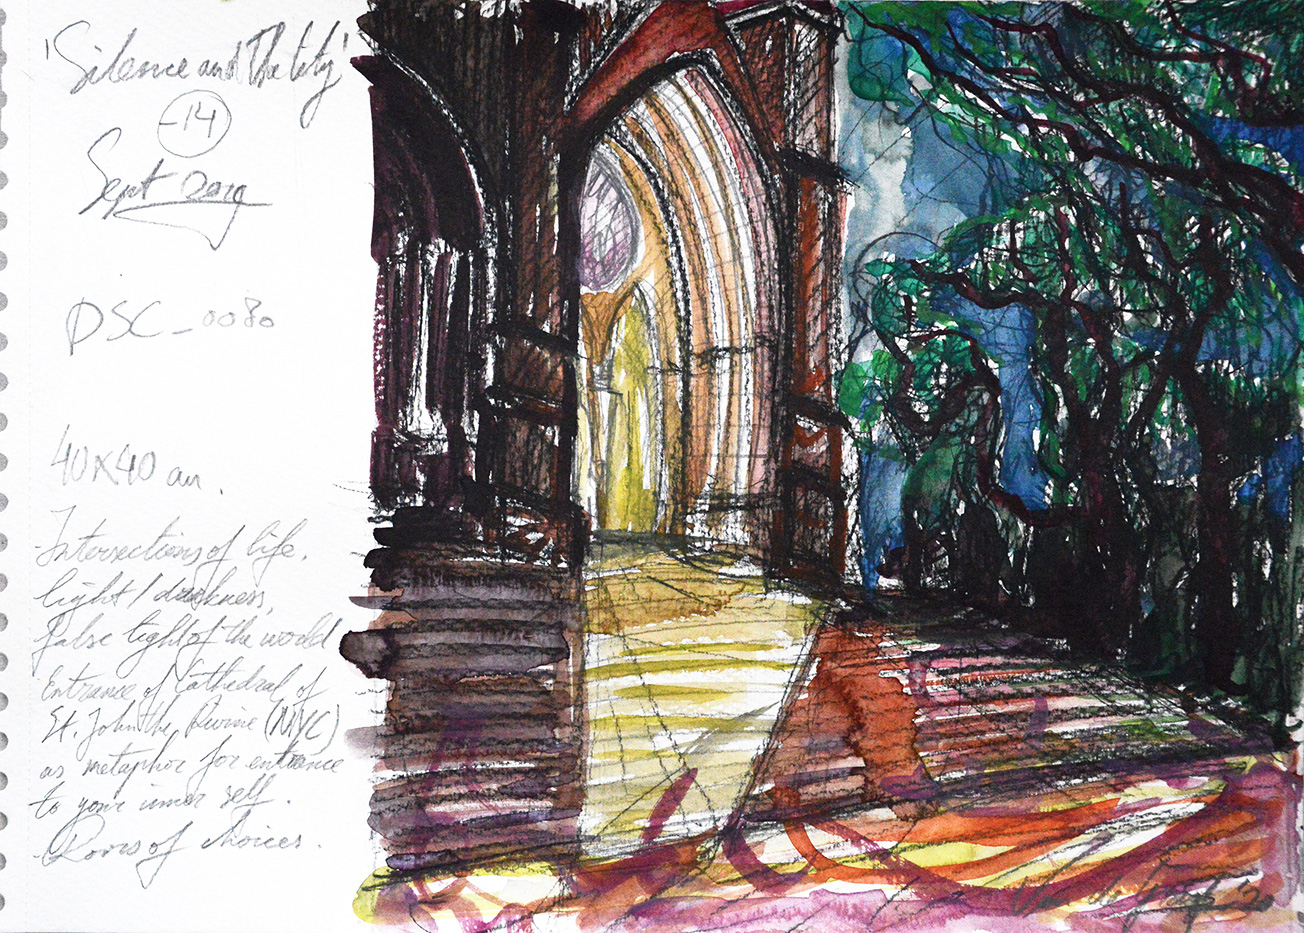 'Silence and The City'
-14
Sept 2019
DSC_0080
40x40 cm.
Intersections of life.
light / darkness,
False light of the world
Entrance of Cathedral of
St. John the Divine (NYC)
as metaphor for entrance
to your inner self.
of choices.